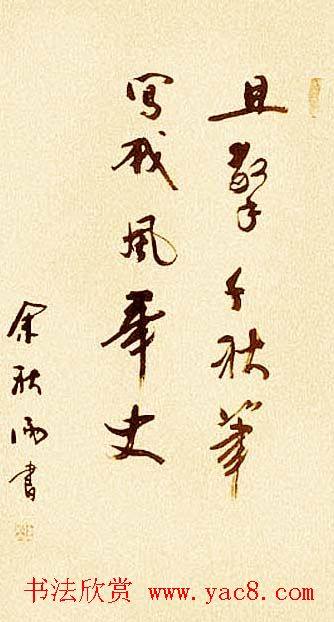 且擎千秋筆
寫我風華史
余秋雨書
书法欣赏 www.yac8.com